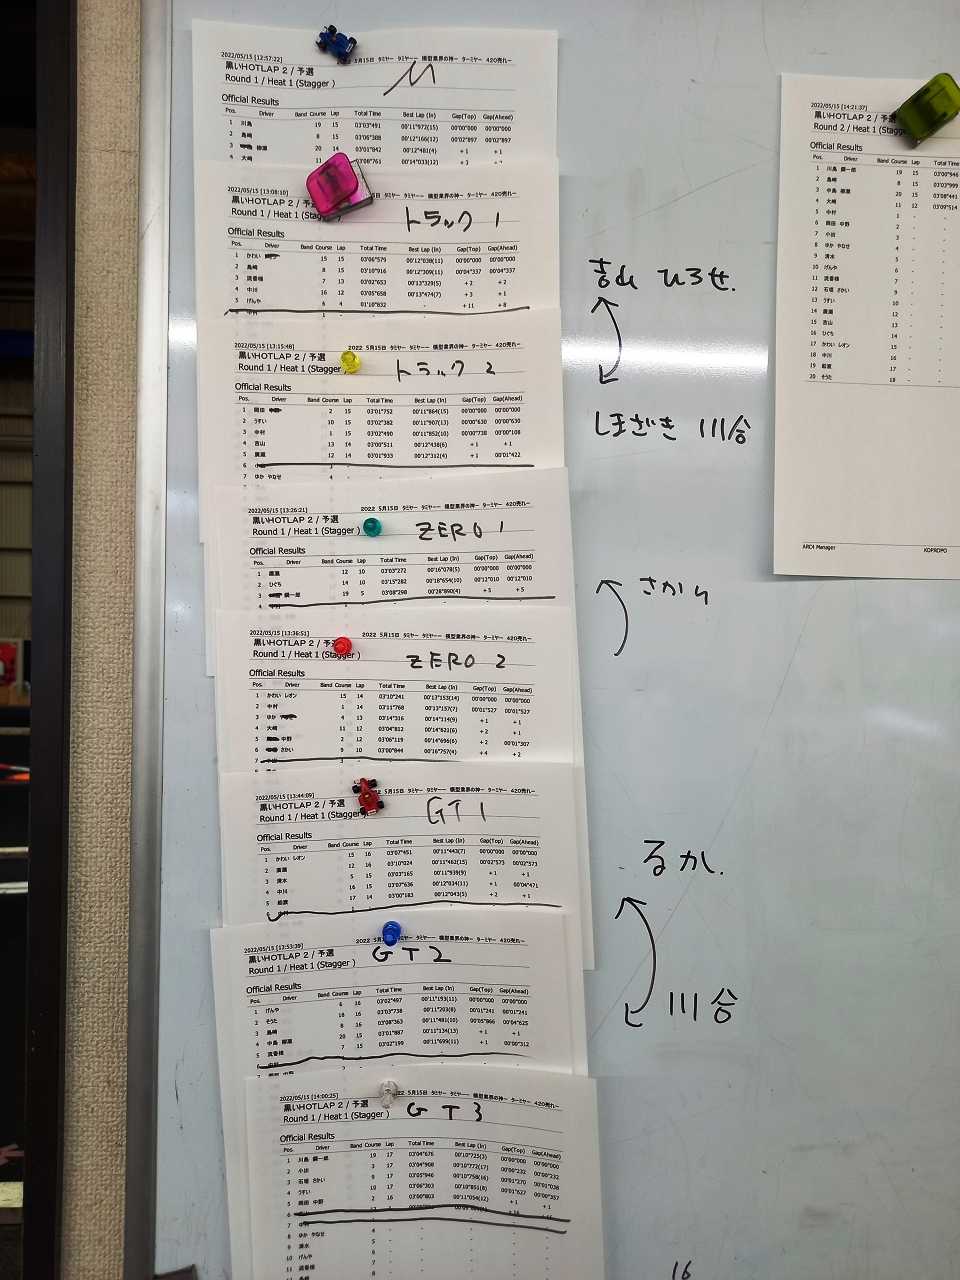 2022/05/15 [12:57:22]
5月15日 タミヤー タミヤー 模型業界の神ー ターミヤー 420売れー
黒いHOTLAP 2 / 予選
M
Round 1 / Heat 1 (Stagger )
Official Results
Pos. Driver Band Course Lap Total Time Best Lap (In) Gap(Top) Gap(Ahead)
1 川島 19 15 03'03"491 00'11"972(15) 00'00"000 00'00"000
2 島崎 8 15 03'06"388 00'12"166(12) 00'02"897 00'02"897
3 柳瀬 20 14 03'01"842 00'12"481(4) + 1 + 1
4 大崎 11 03'08"761 00'14"033(12) + 3
2022/05/15 [13:08:10]
15日 タミヤー タミヤー 模型業界の神ー ターミヤー 420売れー
黒いHOTLAP 2 / 予選
トラック 1
Round 1 / Heat 1 (S
Official Results
Pos. Driver Band Course Lap Total Time Best Lap (In) Gap(Top) Gap(Ahead)
1 かわい 15 15 03'06"579 00'12"038(11) 00'00"000 00'00"000
2 島崎 8 15 03'10"916 00'12"309(11) 00'04"337 00'04"337
3 流香様 7 13 03'02"653 00'13"329(5) + 2 + 2
4 中川 16 12 03'05"658 00'13"474(7) + 3 + 1
5 げんや 6 4 01'10"832 - + 11 + 8
2022/05/15 [13:15:48]
2022 5月15日 タミヤー タミヤー 模型業界の神ー ターミヤー 420売れー
黒いHOTLAP 2 / 予選
トラック 2
Round 1 / Heat 1 (Stagger
Official Results
Pos. Driver Band Course Lap Total Time Best Lap (In) Gap(Top) Gap(Ahead)
1 岡田 2 15 03'01"752 00'11"864(15) 00'00"000 00'00"000
2 うすい 10 15 03'02"382 00'11"907(13) 00'00"630 00'00"630
3 中村 1 15 03'02"490 00'11"852(10) 00'00"738 00'00"108
4 吉山 13 14 03'00"511 00'12"438(6) + 1 + 1
5 廣瀬 12 14 03'01"933 00'12"312(4) + 1 00'01"422
6
7 ゆか やなせ 4 -
2022/05/15 [13:26:21]
2022 5月15日 タミヤー タミヤー 模型業界の神ー ターミヤー 420売れー
黒いHOTLAP 2 / 予選
ZERO 1
Round 1 / Heat 1 (Stagger )
Official Results
Pos. Driver Band Course Lap Total Time Best Lap (In) Gap(Top) Gap(Ahead)
1 廣瀬 12 10 03'03"272 00'16"078(5) 00'00"000 00'00"000
2 ひぐち 14 10 03'15"282 00'18"654(10) 00'12"010 00'12"010
3 鋼一郎 19 5 03'08"298 00'28"890(4) + 5 + 5
4
2022/05/15 [13:36:51]
2022 5月15日 タミヤー タミヤー 模型業界の神ー ターミヤー 420売れー
黒いHOTLAP 2 / 予選
ZERO 2
Round 1 / Heat 1 (Stagger )
Official Results
Pos. Driver Band Course Lap Total Time Best Lap (In) Gap(Top) Gap(Ahead)
1 かわい レオン 15 14 03'10"241 00'13"153(14) 00'00"000 00'00"000
2 中村 1 14 03'11"768 00'13"157(7) 00'01"527 00'01"527
3 ゆか 4 13 03'14"316 00'14"114(9) + 1 + 1
4 大崎 11 12 03'04"812 00'14"621(6) + 2 + 1
5 中野 2 12 03'06"119 00'14"696(6) + 2 00'01"307
6 さかい 9 10 03'00"844 00'16"757(4) + 4 + 2
7
2022/05/15 [13:44:09]
2022 5月15日 タミヤー タミヤー 模型業界の神ー ターミヤー 420売れー
黒いHOTLAP 2 / 予選
GT 1
Round 1 / Heat 1 (Stagger
Official Results
Pos. Driver Band Course Lap Total Time Best Lap (In) Gap(Top) Gap(Ahead)
1 かわい レオン 15 16 03'07"451 00'11"443(7) 00'00"000 00'00"000
2 廣瀬 12 16 03'10"024 00'11"462(15) 00'02"573 00'02"573
3 清水 5 15 03'03"165 00'11"939(9) + 1 + 1
4 中川 16 15 03'07"636 00'12"034(11) + 1 00'04"471
5 17 14 03'00"183 00'12"043(5) + 2 + 1
6
2022/05/15 [13:53:39]
2022 5月15日 タミヤー タミヤー 模型業界の神ー ターミヤー 420売れー
黒いHOTLAP 2 / 予選
GT 2
Round 1 / Heat 1 (Stagger )
Official Results
Pos. Driver Band Course Lap Total Time Best Lap (In) Gap(Top) Gap(Ahead)
1 げんや 6 16 03'02"497 00'11"193(11) 00'00"000 00'00"000
2 そうた 18 16 03'03"738 00'11"203(8) 00'01"241 00'01"241
3 島崎 8 16 03'08"363 00'11"481(10) 00'05"866 00'04"625
4 中島 柳瀬 20 15 03'01"887 00'11"134(13) + 1 + 1
5 流香様 7 15 03'02"199 00'11"699(11) + 1 00'00"312
6
2022/05/15 [14:00:25]
022 5月15日 タミヤー タミヤー 模型業界の神ー ターミヤー 420売れー
黒いHOTLAP 2 / 予選
GT 3
Round 1 / Heat 1 (Stagger )
Official Results
Pos. Driver Band Course Lap Total Time Best Lap (In) Gap(Top) Gap(Ahead)
1 川島 鋼一郎 19 17 03'04"676 00'10"725(3) 00'00"000 00'00"000
2 小田 3 17 03'04"908 00'10"772(17) 00'00"232 00'00"232
3 石塚 さかい 9 17 03'05"946 00'10"758(16) 00'01"270 00'01"038
4 うすい 10 17 03'06"303 00'10"851(8) 00'01"627 00'00"357
5 岡田 中野 2 16 03'00"803 00'11"054(12) + 1 + 1
6
7
8 ゆか やなせ 4
9 清水 5
10 げんや 6
11 流香様 7
12 島崎 8
吉山 ひろせ.
しまざき 川合
さかい
るか.
川合
16
2022/05/15 [14:21:37]
黒いHOTLAP 2 / 予選
Round 2 / Heat 1 (Stagger
Official Results
Pos. Driver Band Course Lap Total Time
1 川島 鋼一郎 19 15 03'00"946
2 島崎 8 15 03'03"999
3 中島 柳瀬 20 15 03'08"441
4 大崎 11 12 03'09"514
5 中村 1 - -
6 岡田 中野 2 - -
7 小田 3 - -
8 ゆか やなせ 4 - -
9 清水 5 - -
10 げんや 6 - -
11 流香様 7 - -
12 石塚 さかい 9 - -
13 うすい 10 - -
14 廣瀬 12 - -
15 吉山 13 - -
16 ひぐち 14 - -
17 かわい レオン 15 - -
18 中川 16 - -
19 17 - -
20 そうた 18 - -
ARCt Manager
KOPROPO